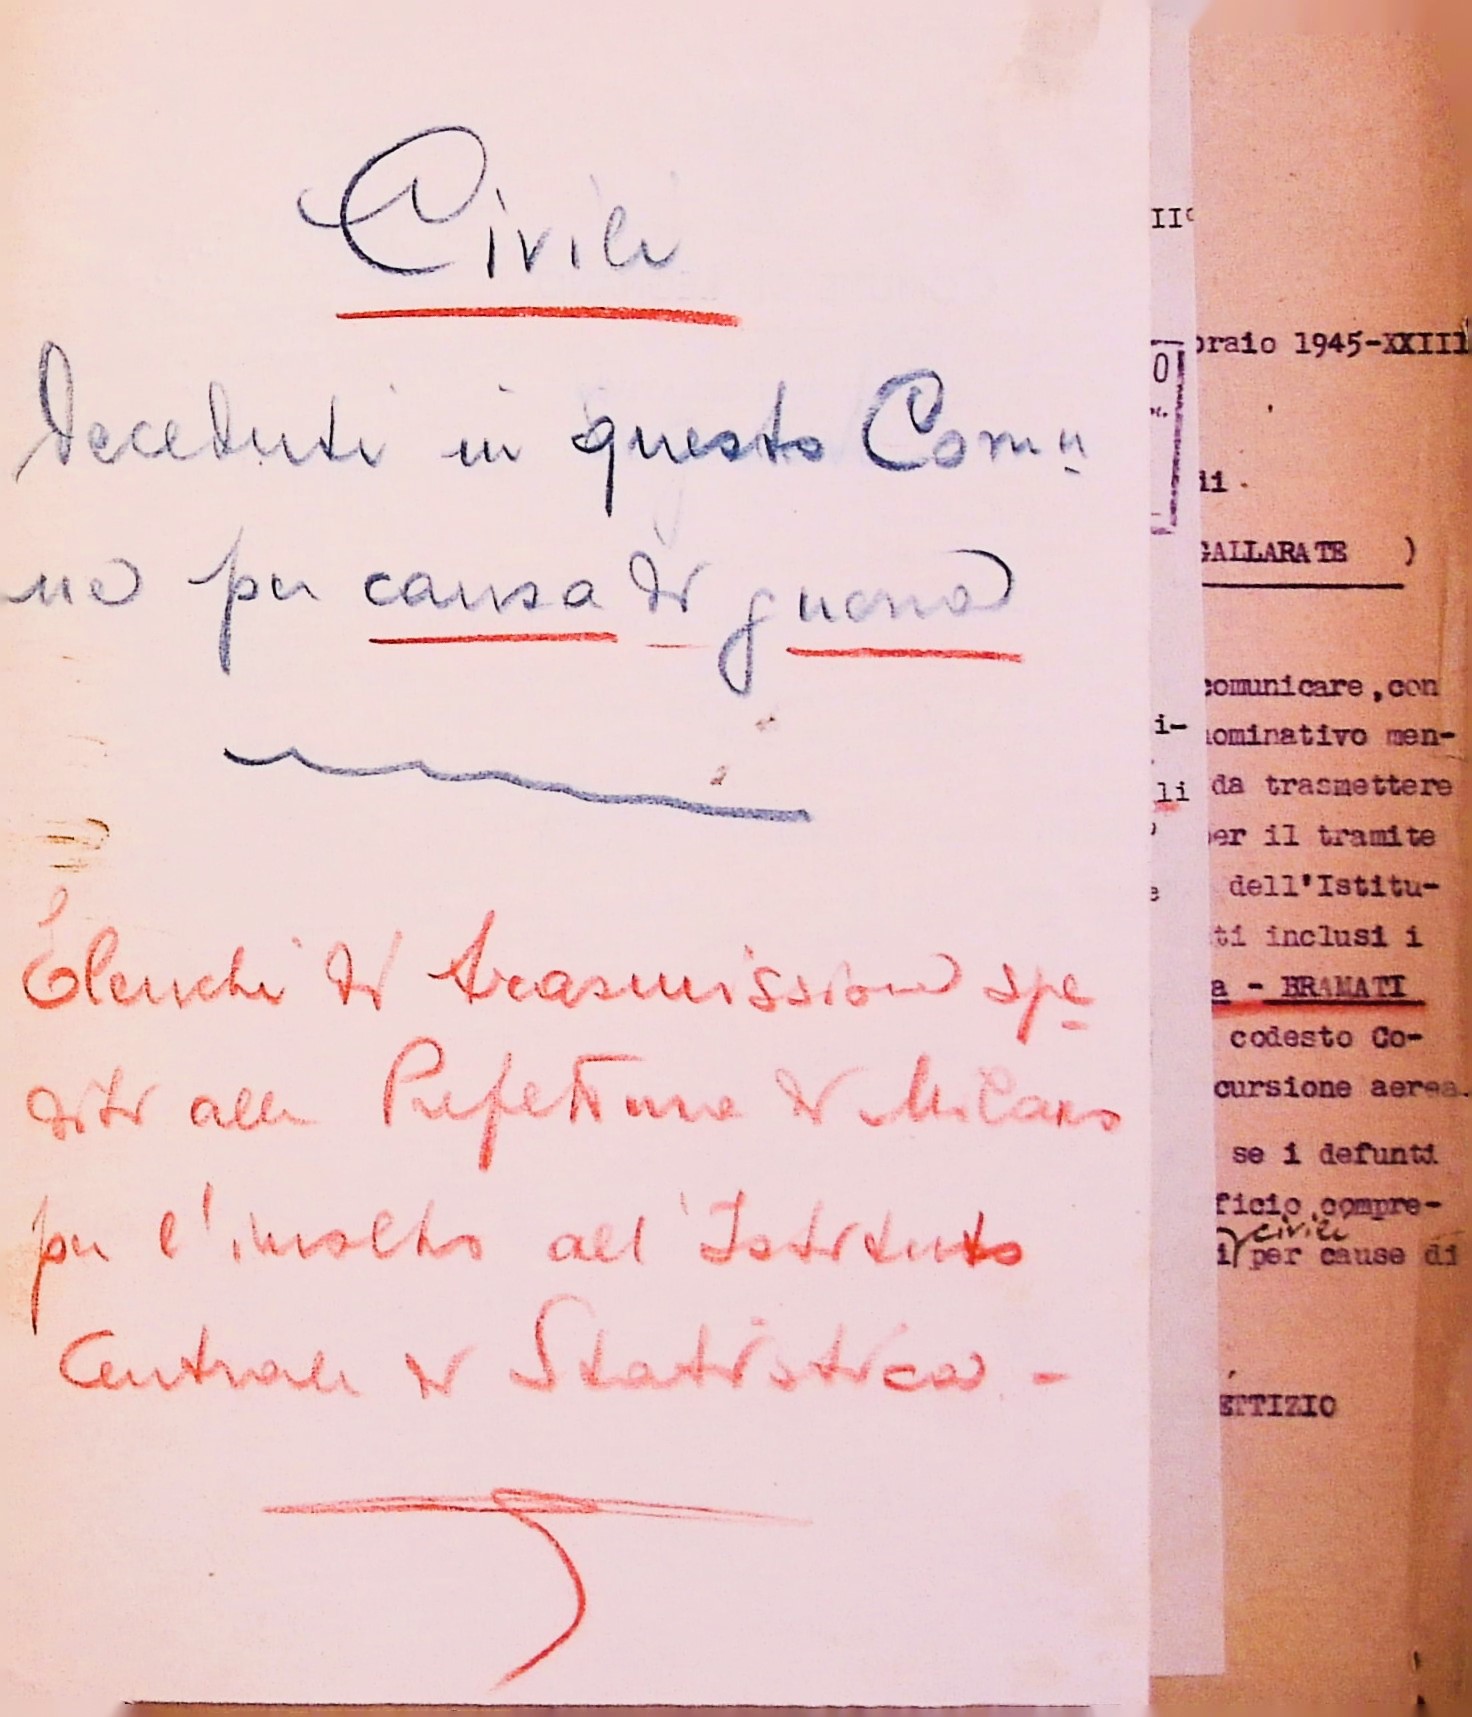 Civili
Deceduti in questo Comu
ne per causa di guerra
Elenchi di trasmissione spe
diti alla Prefettura di Milano
per l'inoltro all'Istituto
Centrale di Statistica -
II°
braio 1945-XXIII
O
di
GALLARATE )
comunicare, con
i-
nominativo men-
li
da trasmettere
per il tramite
e
dell'Istitu-
ti inclusi i
a - BRAMATI
codesto Co-
cursione aerea.
se i defunti
ficio, compre-
civili
i per cause di
ETTIZIO